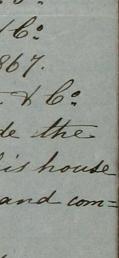 & Co
1867.
& Co
de the
his house
and com=